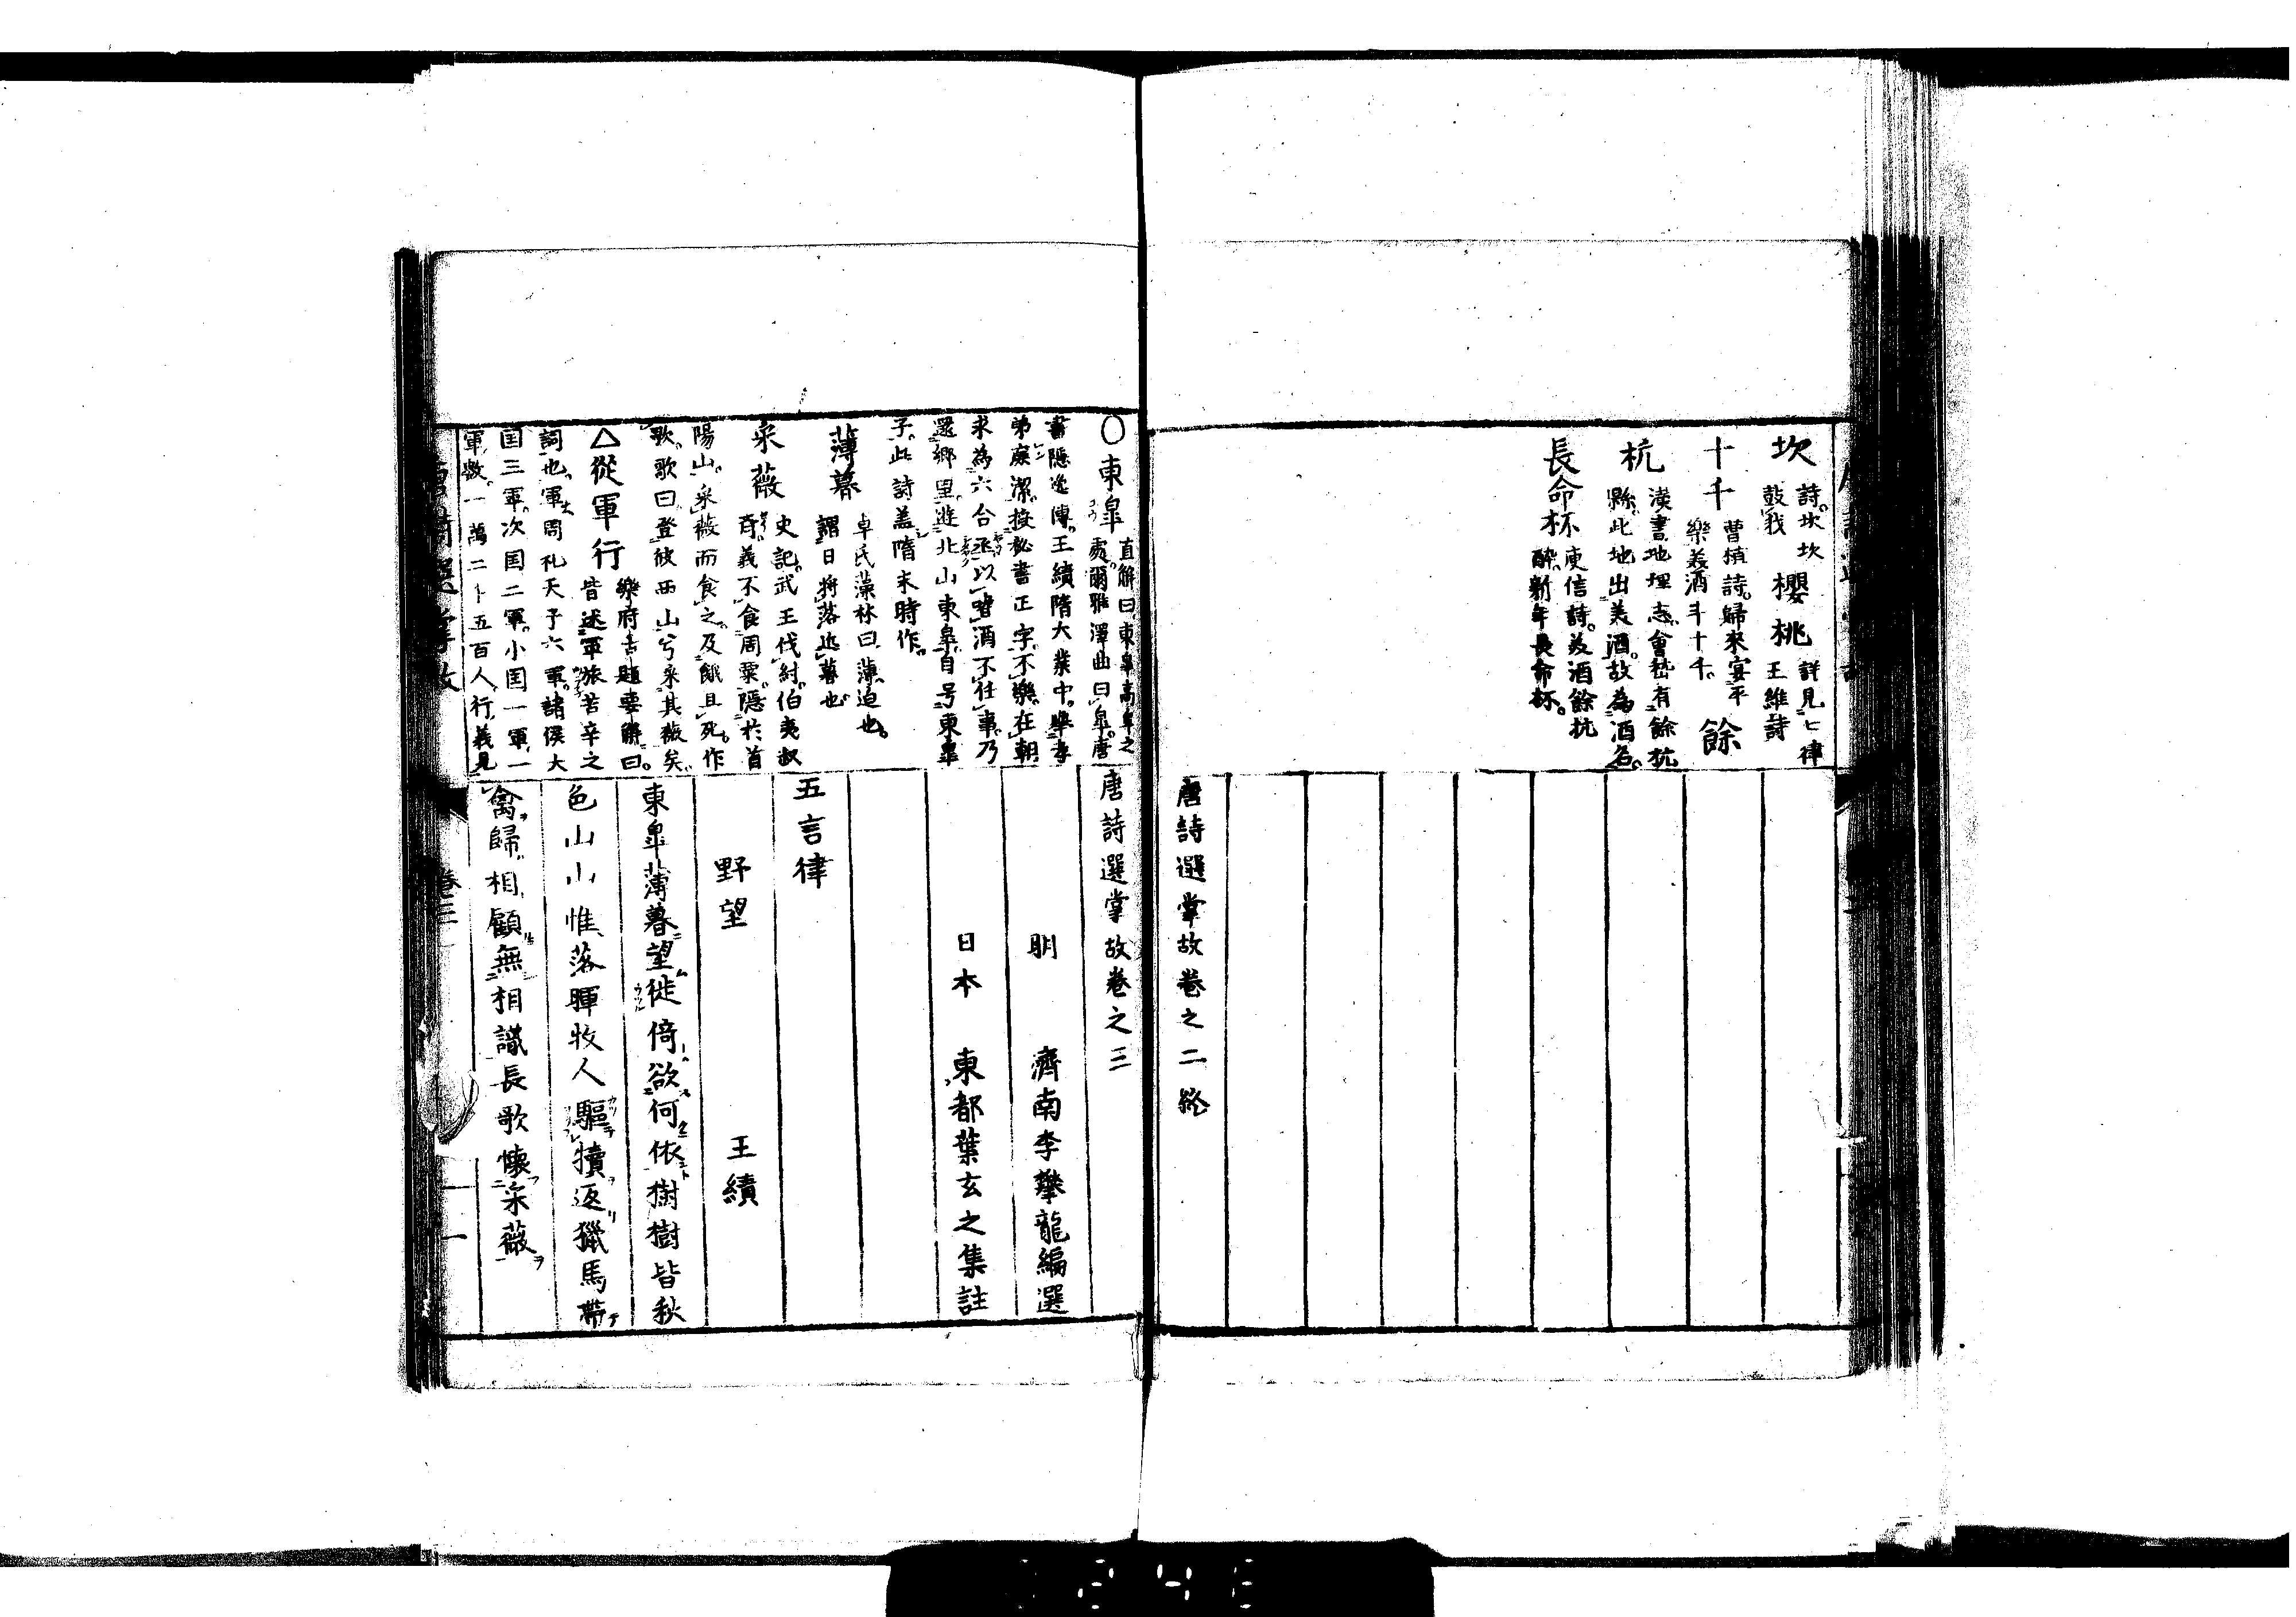 坎 詩坎坎鼓我
櫻桃 詳見七律王維詩
十千 曹植詩歸來宴平樂美酒斗十千
餘
杭 漢書地理志會稽有餘杭縣此地出美酒故為酒名
長命杯 庾信詩美酒餘杭醉新年長命杯
唐詩選掌故卷之二終
〇東皐 直解曰東皐高阜之處爾雅澤曲曰皐唐
書隱逸傳王績隋大業中舉孝
弟廉潔授秘書正字不樂在朝
求為六合丞以嗜酒不任事乃
還鄉里遊北山東皐自号東皐
子此詩盖隋末時作
薄暮 卓氏藻林曰薄迫也謂日將落也暮也
采薇 史記武王伐紂伯夷叔齊義不食周粟隱於首
陽山采薇而食之及餓且死作
歌歌曰登彼西山兮采其薇矣
△從軍行 樂府古題要解曰皆述軍旅苦辛之
詞也軍周礼天子六軍諸侯大
国三軍次国二軍小国一軍一
軍數一萬二千五百人行義見
唐詩選掌故卷之三
明 濟南李攀龍編選
日本 東都葉玄之集註
五言律
野望 王績
東皐薄暮望徙倚欲何依樹樹皆秋
色山山惟落暉牧人驅犢返獵馬帶
禽歸相顧無相識長歌懷采薇
唐詩選掌故 卷三 一